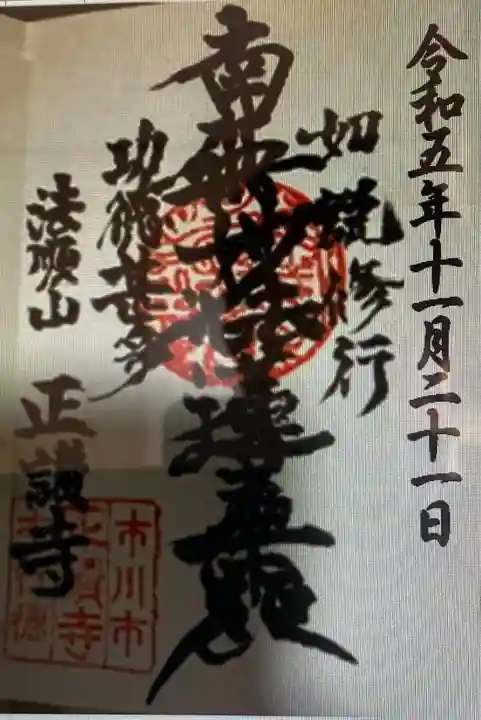 令和五年十一月二十一日
如説修行
南無妙法蓮華経
功徳甚多
法順山
正讃寺
市川市